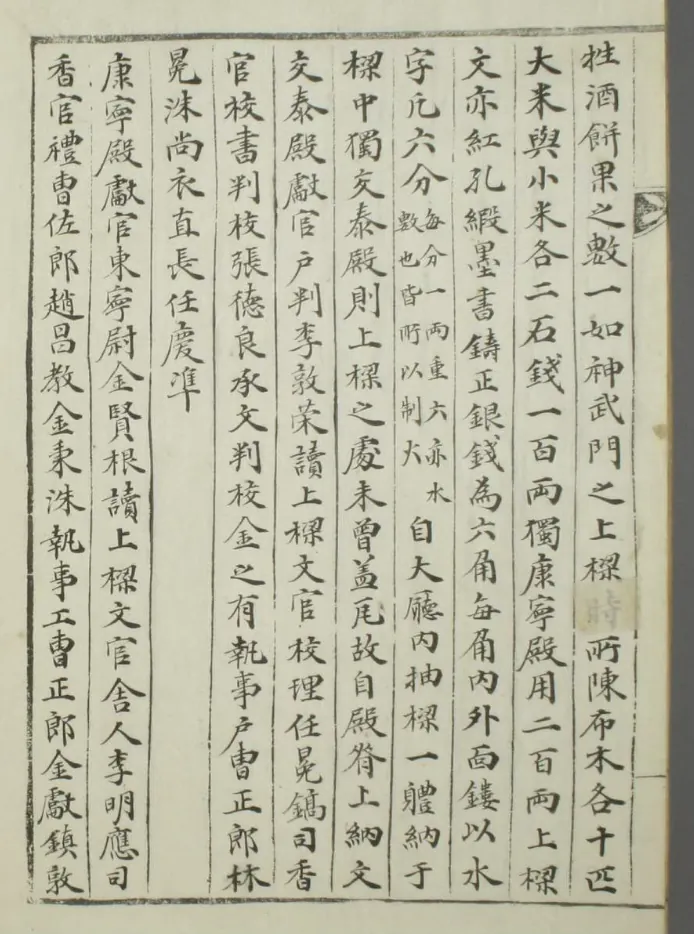 牲酒餅果之數一如神武門之上樑時所陳布木各十匹
大米與小米各二石錢一百兩獨康寧殿用二百兩上樑
文亦紅孔緞墨書鑄正銀錢為六角每角內外面鏤以水
字凡六分每分一兩重六亦水數也皆所以制火自大廳內抽樑一軆納于
樑中獨交泰殿則上樑之處未曾盖瓦故自殿脊上納文
交泰殿獻官戶判李敦荣讀上樑文官校理任冕鎬司香
官校書判校張德良承文判校金之有執事戶曹正郎林
冕洙尚衣直長任慶凖
康寧殿獻官東寧尉金賢根讀上樑文官舍人李明應司
香官禮曹佐郎趙昌教金秉洙執事工曹正郎金獻鎮敦